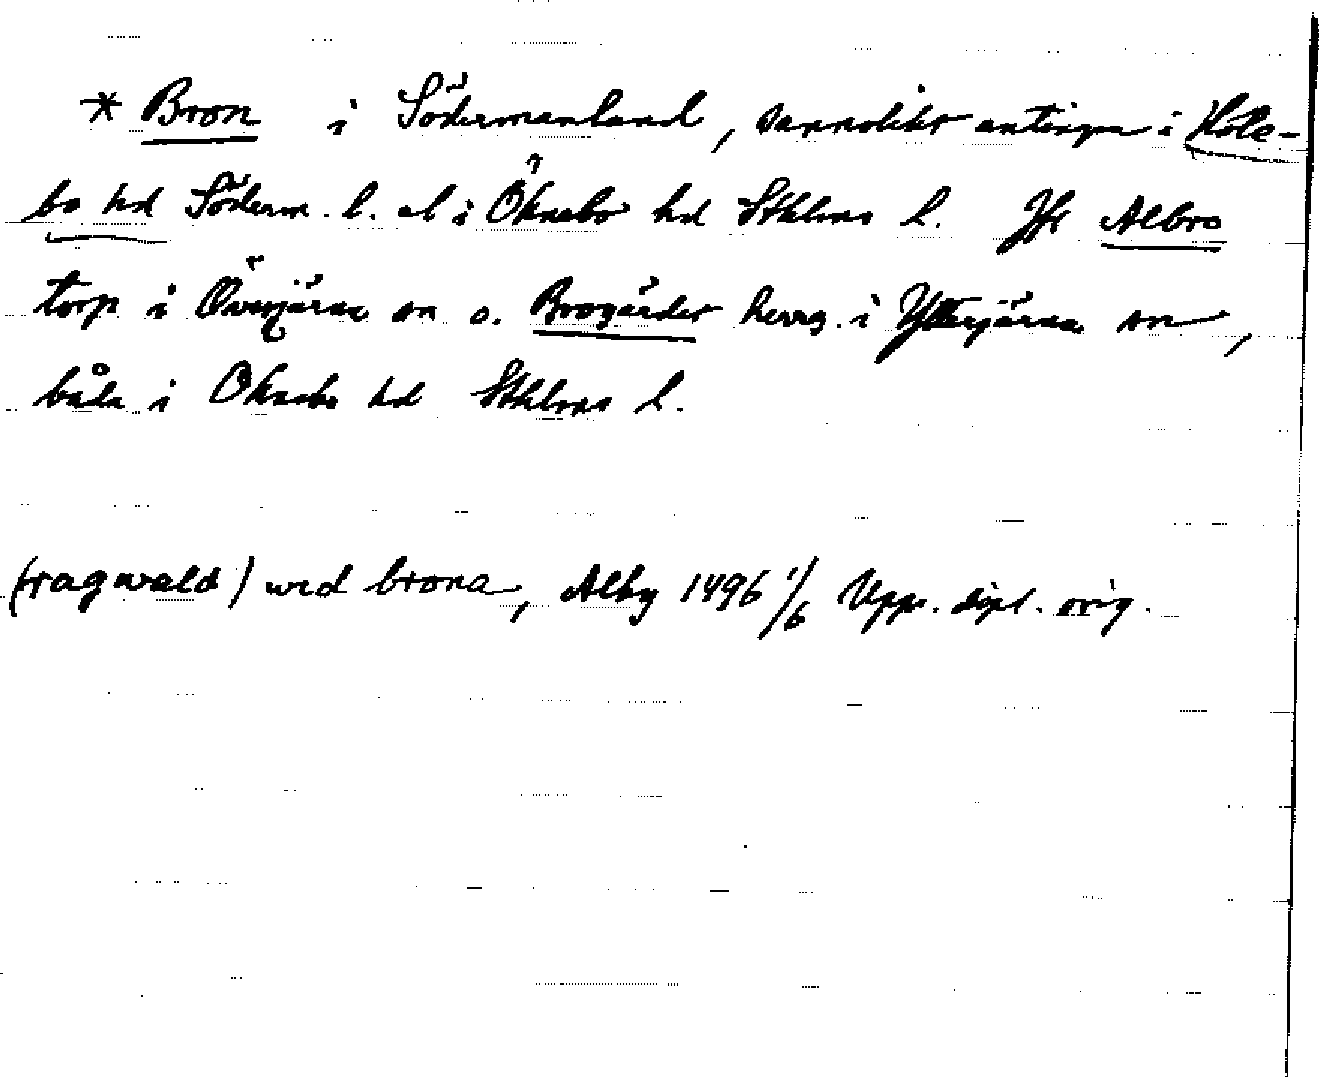 * Bron i Södermanland, sannolikt antingen i Höle-
bo hd Söderm. l. el i Öknebo hd Sthlms l. Jfr Albro
torp i Överjärna sn o. Brogärdet herrg. i Ytterjärna sn,
båda i Öknebo hd Sthlms l.
(ragwald) wed brona, Alby 1496 1/6 Upps. dipl. orig.